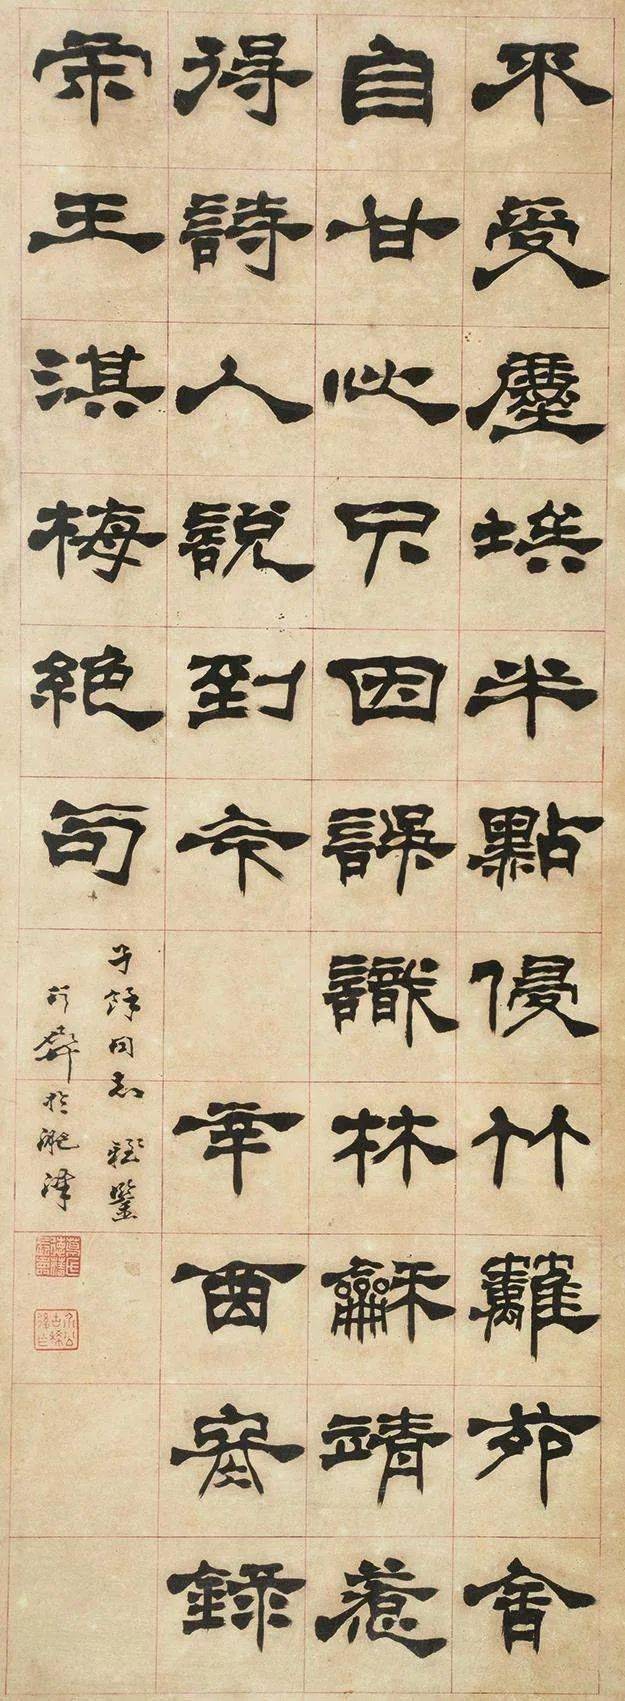 不受塵埃半點侵竹籬茆舍
自甘心只因誤識林龢靖惹
得詩人說到今 辛酉寒錄
宋王淇梅絕句
子 同志 鑒
於淝津